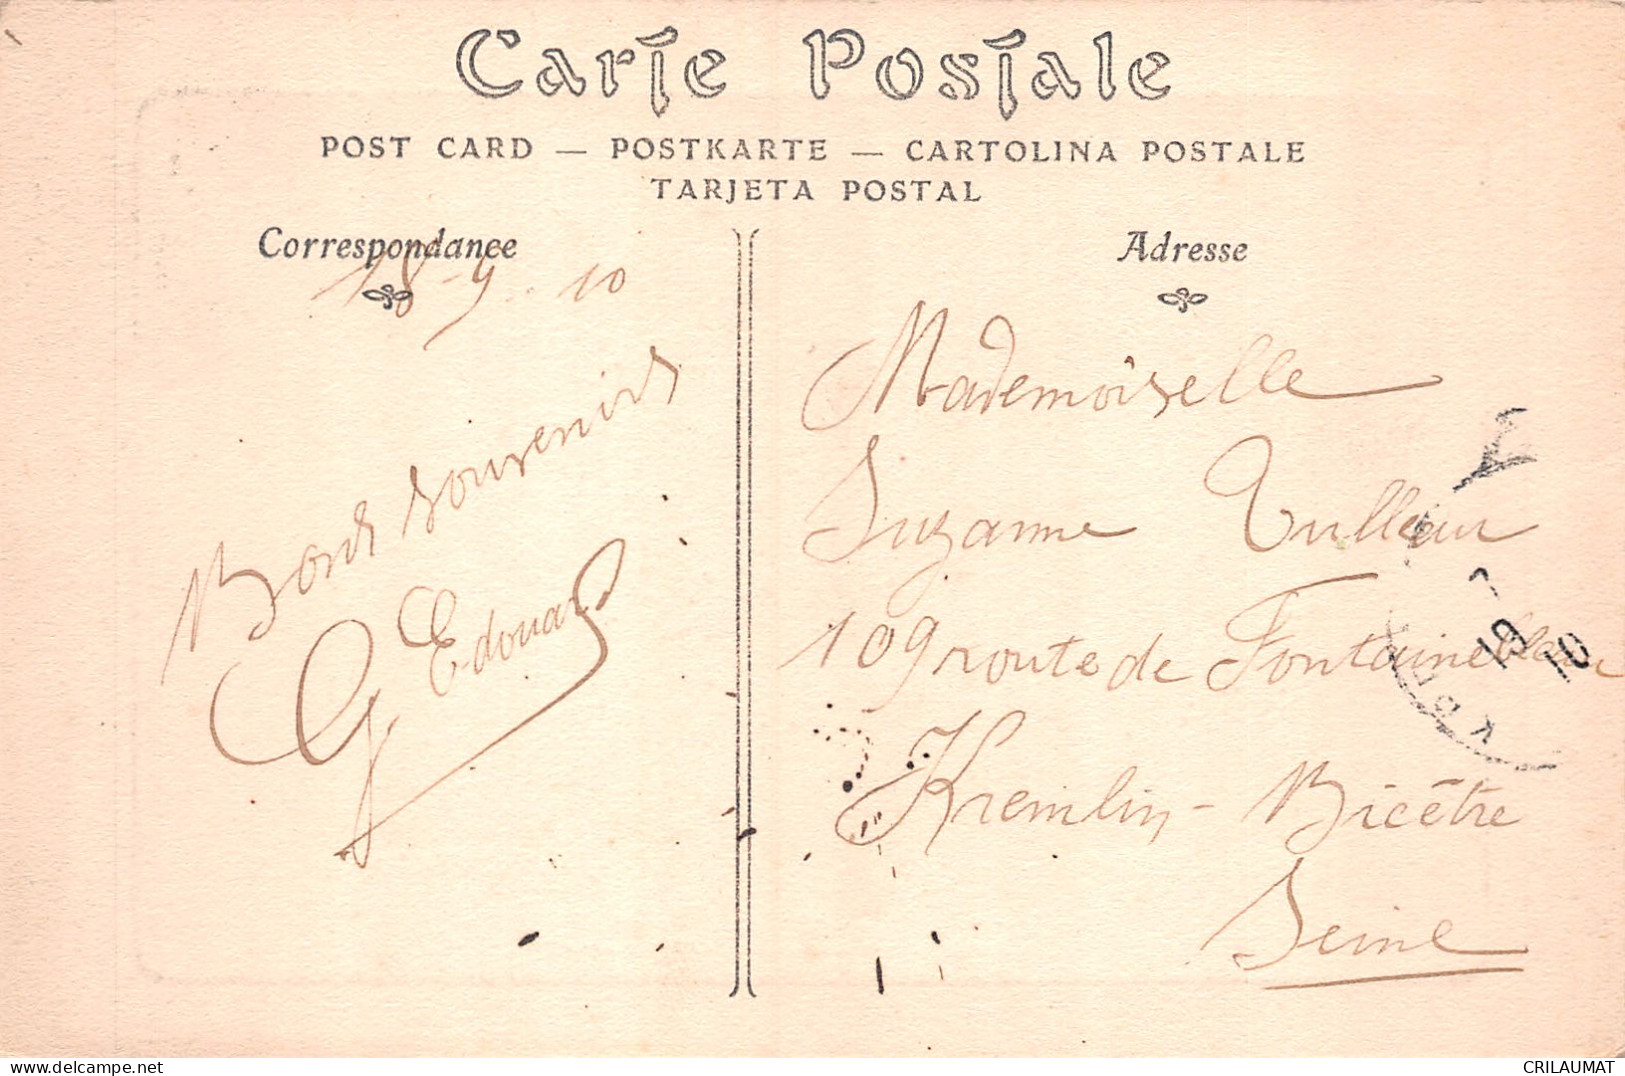 Carte Postale
POST CARD — POSTKARTE — CARTOLINA POSTALE
TARJETA POSTAL
Correspondance
18-9 10
Bons souvenirs
G Edouard
Adresse
Mademoiselle
Suzanne Tulleau
109 route de Fontainebleau
Kremlin-Bicêtre
Seine
19
10
CRILAUMAT